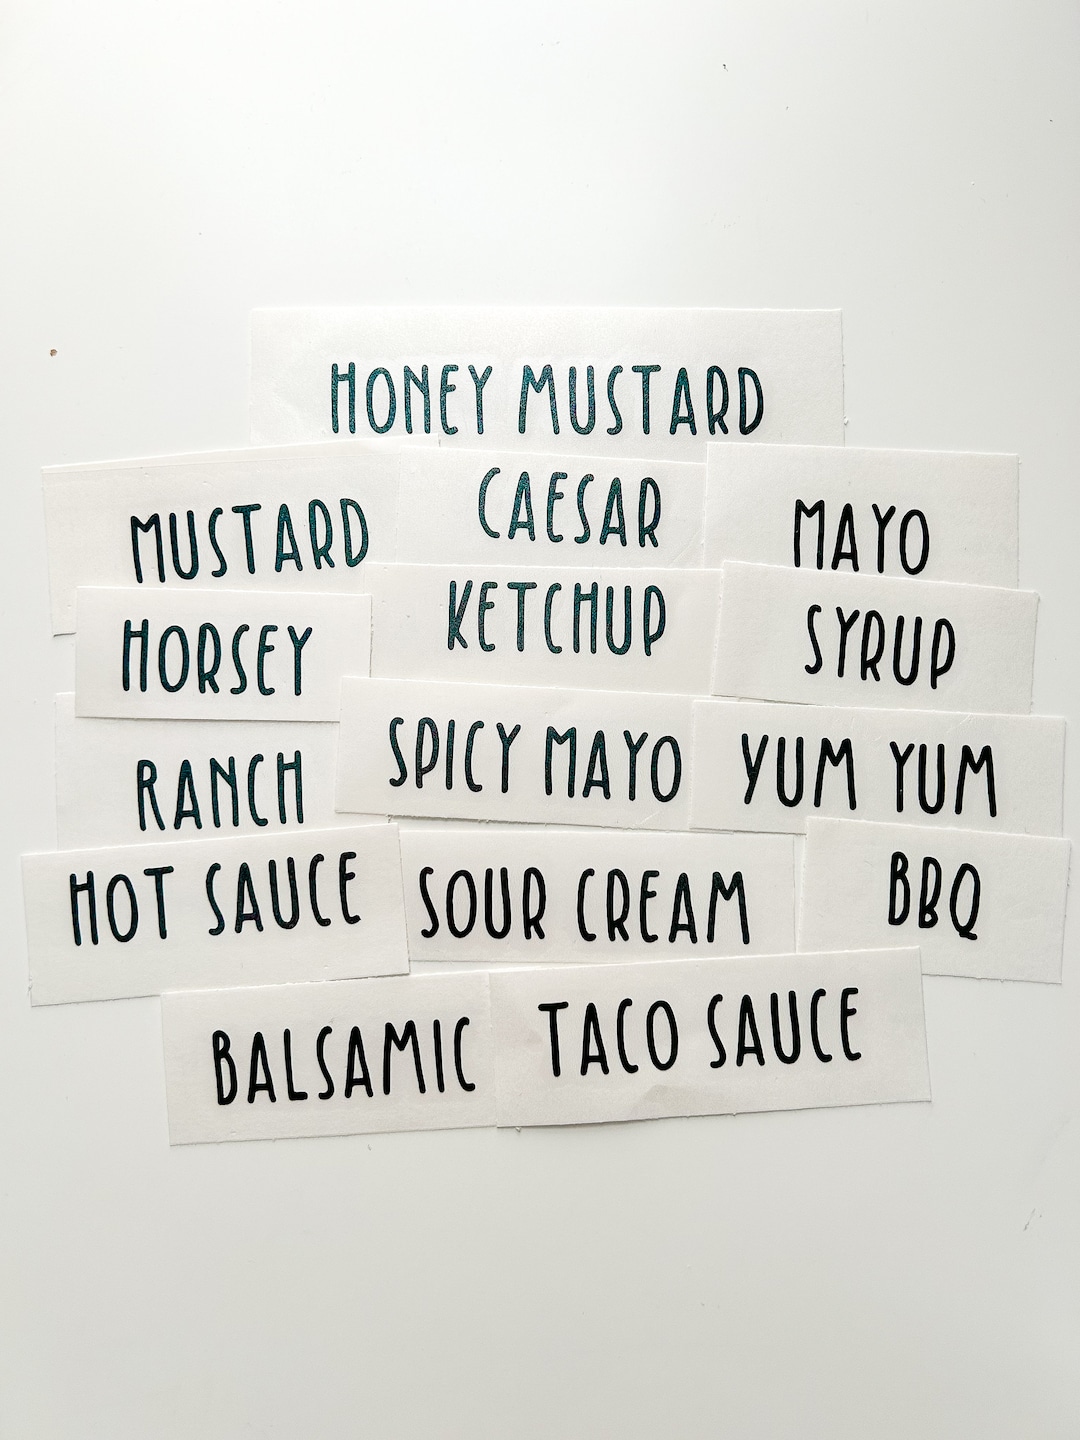 HONEY MUSTARD
MUSTARD
CAESAR
MAYO
HORSEY
KETCHUP
SYRUP
RANCH
SPICY MAYO
YUM YUM
HOT SAUCE
SOUR CREAM
BBQ
BALSAMIC
TACO SAUCE